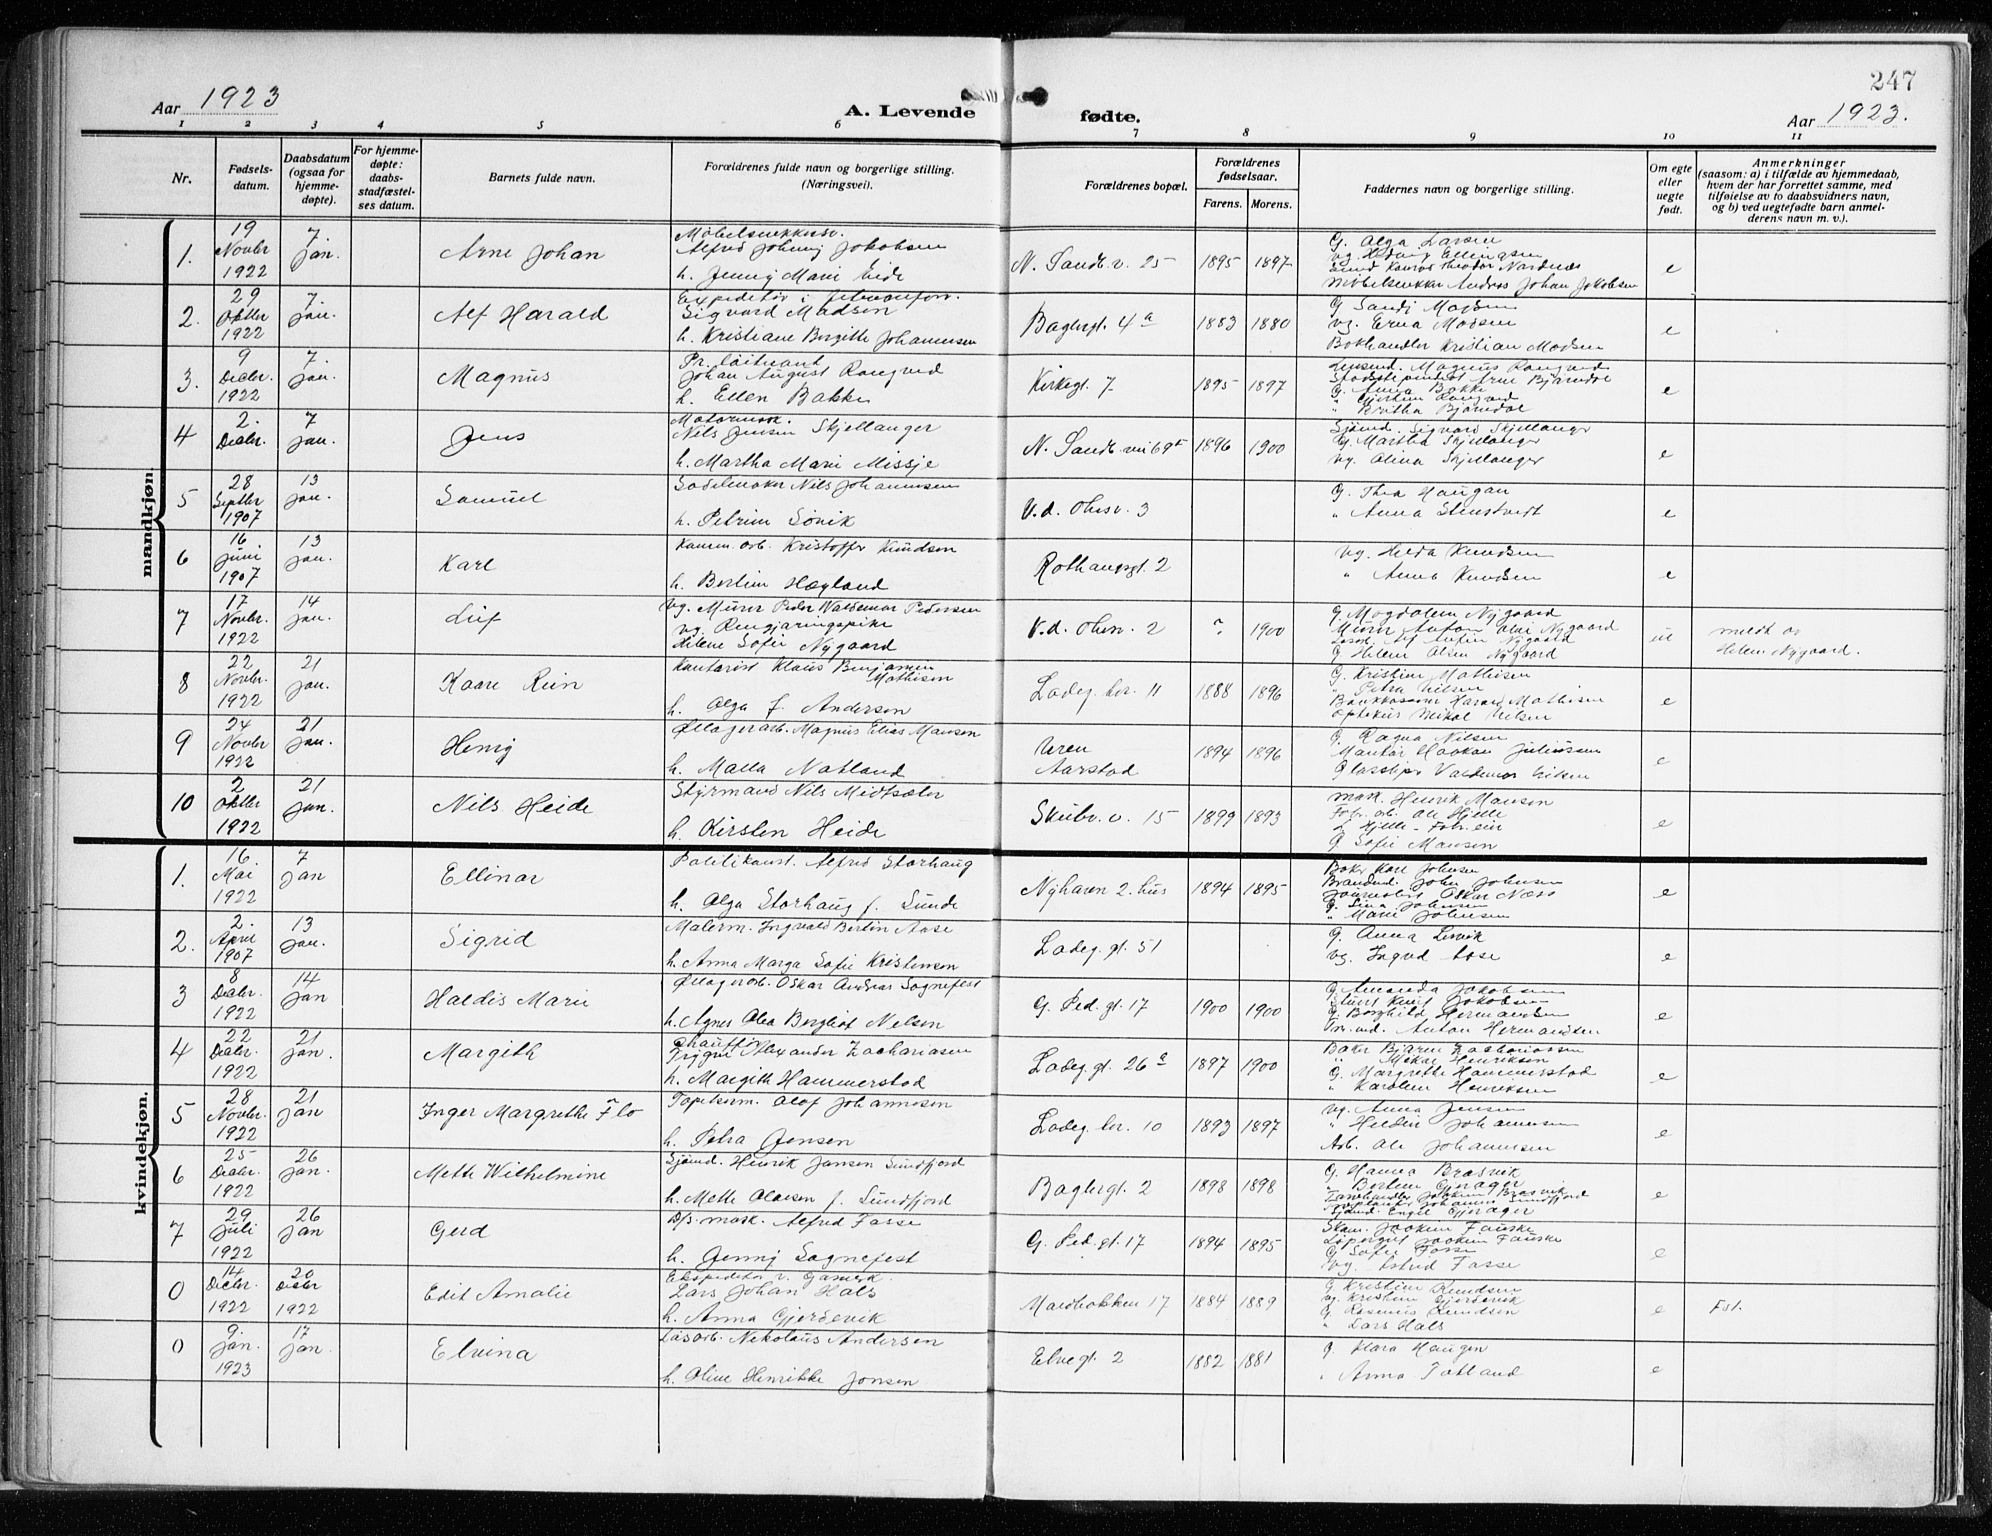 247
Aar 1923
A. Levende fødte.
Aar 1923.
1 2 3 4 5 6 7 8 9 10 11
Nr.
Fødsels-
datum.
Daabsdatum
(ogsaa for
hjemme-
døpte).
For hjemme-
døpte:
daabs-
stadfæstel-
ses datum.
Barnets fulde navn.
Forældrenes fulde navn og borgerlige stilling.
(Næringsvei).
Forældrenes bopæl.
Forældrenes
fødselsaar.
Farens. Morens.
Faddernes navn og borgerlige stilling.
Om egte
eller
uegte
født.
Anmerkninger
(saasom: a) i tilfælde av hjemmedaab,
hvem der har forrettet samme, med
tilføielse av to daabsvidners navn,
og b) ved uegtefødte barn anmel-
derens navn m. v.).
mandkjøn.
1. 19 Novbr 1922 7 Jan. Arne Johan
Alfred Johnny Jakobsen
h. Jenny Marie Eide
N. Sandv. v. 25 1895 1897
G. Olga Larsen
Møbelsnekker Andreas Johan Jakobsen
e
2. 29 Oktbr 1922 7. Jan. Alf Harald
Sigvard Madsen
h. Kristiane Bergithe Johannesen
Baglergt. 4a 1883 1880
G Sandj Madsen
vg. Erna Madsen
Bokhandler Kristian Madsen
e
3. 9 Decbr. 1922 7. Jan. Magnus
Pr. løitnant
Johan August Rongved
h. Ellen Bakke
Kirkegt. 7 1895 1897
G. Anna Bakke
" Britha Bjørndal
e
4 2. Decbr. 7 Jan. Jens
Nils Jensen Skjellanger
h. Martha Marie Missje
N. Sandv. vei 69 1896 1900
Sjømd. Sigvard Skjellanger
G. Martha Skjellanger
vg. Olina Skjellanger
e
5 28 Septbr 1907 13 Jan. Samuel
Sadelmaker Nils Johannesen
h. Petrine Sørvik
V.d. Ohsv. 3
G. Thea Haugan
" Anna Stenstvedt
e
6 16 Juni 1907 13 Jan. Karl
Komm. arb. Kristoffer Knudsen
h. Bertine Hægland
Rothaugsgt. 2
vg. Hilda Knudsen
" Anna Knudsen
e
7 17 Novbr. 1922 14 Jan. Leif
vg. Murer Peder Valdemar Pedersen
vg. Rengjøringspike
Helene Sofie Nygaard
V.d. Ohsv. 2 ? 1900
G. Magdalene Nygaard
Murer Anton Olai Nygaard
G Helene Olsen Nygaard
u
meldt av
Helene Nygaard.
8 22 Novbr. 1922 21 Jan. Kaare Rein
Kontorist Klaus Benjamin
Mathisen
h. Olga f. Andersen
Ladeg. br. 11 1888 1896
G. Kristine Mathisen
" Petra Nilsen
Bankkasserer Harald Mathisen
Optikus Mikal Nilsen
e
9 24 Novbr 1922 21 Jan. Henry
Øllagerarb. Magnus Elias Monsen
h. Malla Natland
Uren
Aarstad
1894 1896
G. Ragna Nilsen
Montør Haakon Juliussen
Glassliper Valdemar Nilsen
e
10 2 Oktbr 1922 21 Jan. Nils Heide
Styrmand Nils Midtsæter
h. Kirsten Heide
Skutev. v. 15 1899 1893
Mask. Henrik Monsen
Fabr. arb. Ole Hjelle
G Sofie Monsen
e
kvindekjøn.
1. 16. Mai 1922 7 Jan Ellinor
Politikonst. Alfred Storhaug
h. Olga Storhaug f. Sunde
Nyhavn 2. hus 1894 1895
Baker Karl Johnsen
Brandmd. John Johnsen
Journalist Oskar Næss
G. Lina Johnsen
" Marie Johnsen
e
2. 2. April 1907 13 Jan. Sigrid
Malerm. Ingvald Bertin Aase
h. Anna Marga Sofie Kristensen
Ladeg. gt. 51
G. Anna Lervik
vg. Ingvd Aase
e
3 8 Decbr. 1922 14 Jan Haldis Marie
Øllagerarb. Oskar Andreas Sognefest
h. Agnes Olea Bergliot Nelson
G. Ped. gt. 17 1900 1900
G. Amanda Jakobsen
Stuert Knut Jakobsen
G. Borghild Hermansen
Anton Hermandsen
e
4 22 Decbr. 1922 21 Jan. Margith
Chauffør
Trygve Alexander Zachariasen
h. Margith Hammerstad
Ladeg. gt. 26a 1897 1900
Baker Bjarne Zachariassen
G. Margrethe Hammerstad
" Karoline Henriksen
e
5 28 Novbr. 1922 21 Jan Inger Margrethe Flo
Tapetserm. Olof Johannesen
h. Petra Jensen
Ladeg. br. 10 1893 1897
vg. Anna Jensen
Arb. Ole Johannesen
e
6 25 Decbr. 1922 26 Jan. Mette Wilhelmine
Sjømd. Henrik Jansen Sundfjord
h. Mette Olausen f. Sundfjord
Baglergt. 2 1898 1898
G. Hanna Brosvik
" Bertine Gjerager
Sjømd. Engel Gjerager
e
7 29 Juli 1922 26 Jan Gerd
D/s. mask. Alfred Fasse
h. Jenny Sognefest
G. Ped. gt. 17 1894 1895
Skom. Joakim Fauske
Løpergut Joakim Fauske
G. Sofie Fosse
vg. Astrid Fasse
e
0 14 Decbr. 1922 20 Decbr 1922 Edit Amalie
Lars Johan Hals
h. Anna Gjerdevik
Mardbakken 17 1884 1889
G. Kristine Knudsen
vg. Kristine Gjerdevik
G. Rasmus Knudsen
" Lars Hals
e
Fst.
0 9. Jan. 1923 17 Jan Elvina
Løsarb. Nikolaus Andersen
h. Oline Henrikke Jonsen
Elvegt. 2 1882 1881
G Klara Haugen
" Anna Totland
e